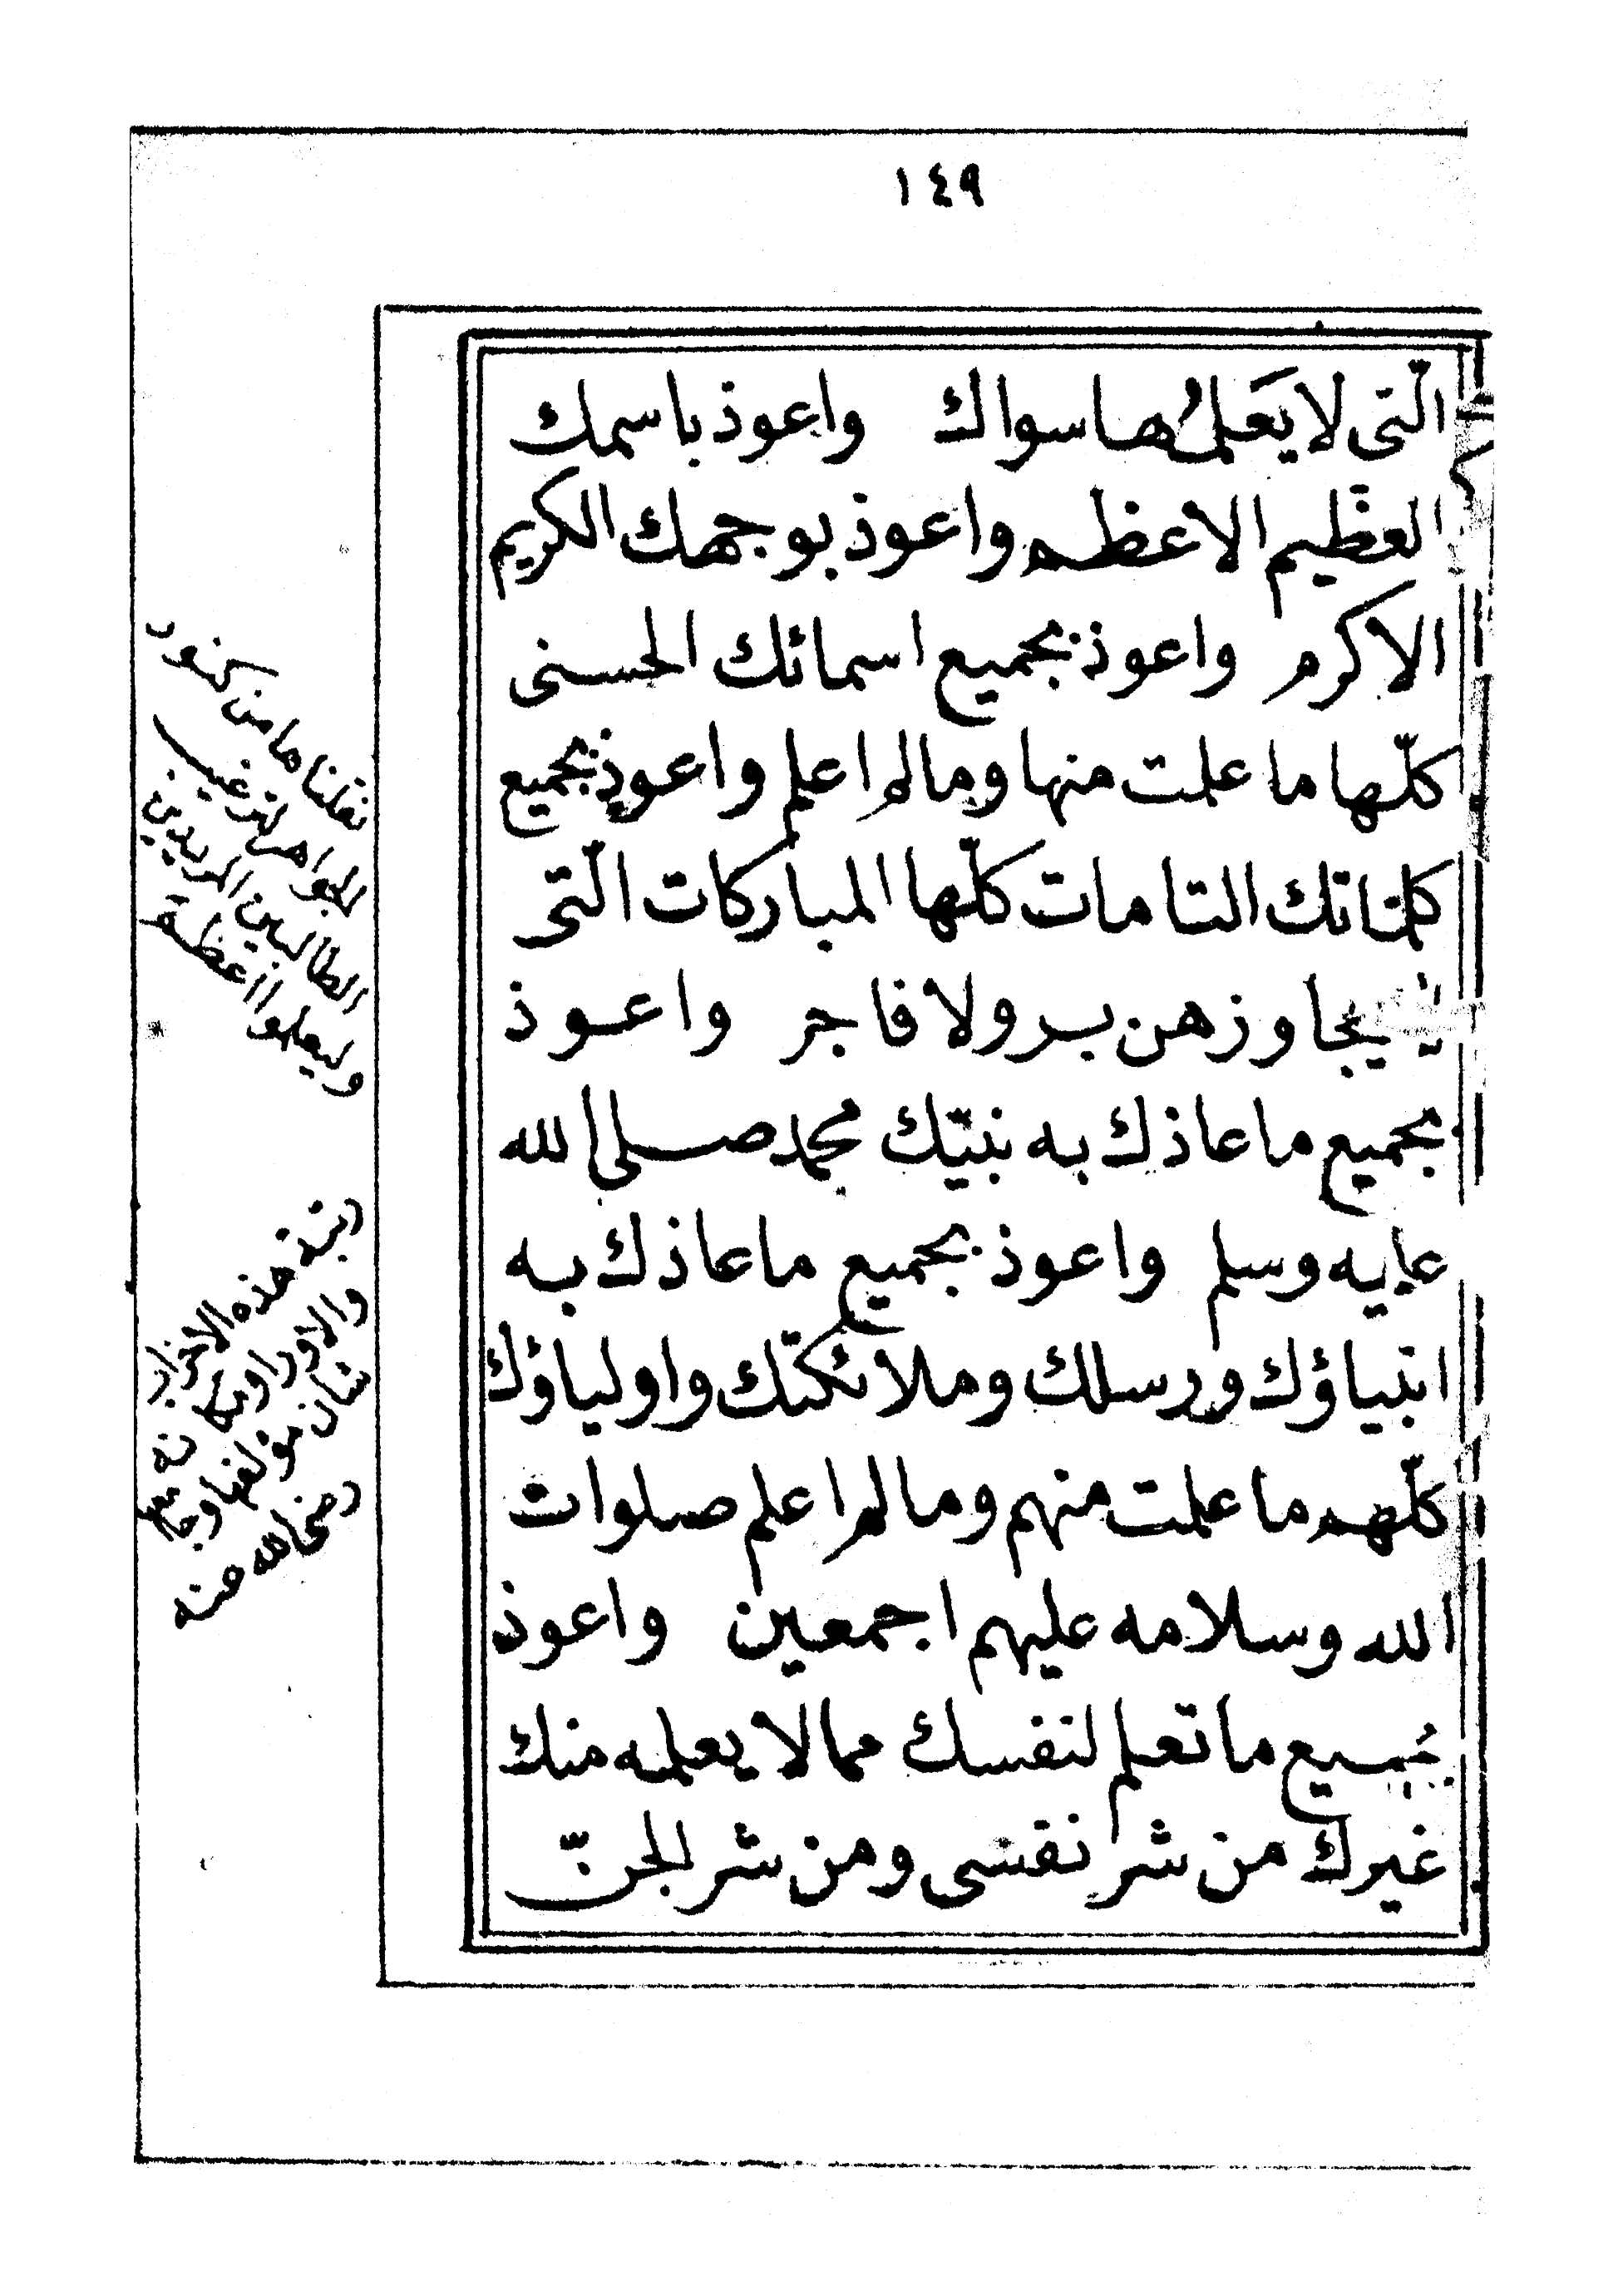 ١٤٩
الّتى لا يَعَلمُها سواك واعوذ باسمك
العظيم الاعظم واعوذ بوجهك الكريم
الاكرم واعوذ بجميع اسمائك الحسنى
كلّها ما علمت منها ومالم اعلم واعوذ بجميع
كلماتك التامات كلّها المباركات الّتى
لا يجاوزهن بر ولا فاجر واعوذ
بجميع ما عاذك به نبيّك محمد صلى الله
عليه وسلم واعوذ بجميع ما عاذك به
انبياؤك ورسلك وملائكتك واولياؤك
كلّهم ما علمت منهم ومالم اعلم صلوات
الله وسلامه عليهم اجمعين واعوذ
بجميع ما تعلم لنفسك مما لا يعلمه منك
غيرك من شر نفسى ومن شر الجنّ
نقلناها من كنوز
الجواهر لترغيب
الطالبين المريدين
وليعلموا عظمة
رتبة هذه الاحزاب
والاوراد ومكانة
شان مؤلفها وجامعها
رضى الله عنه